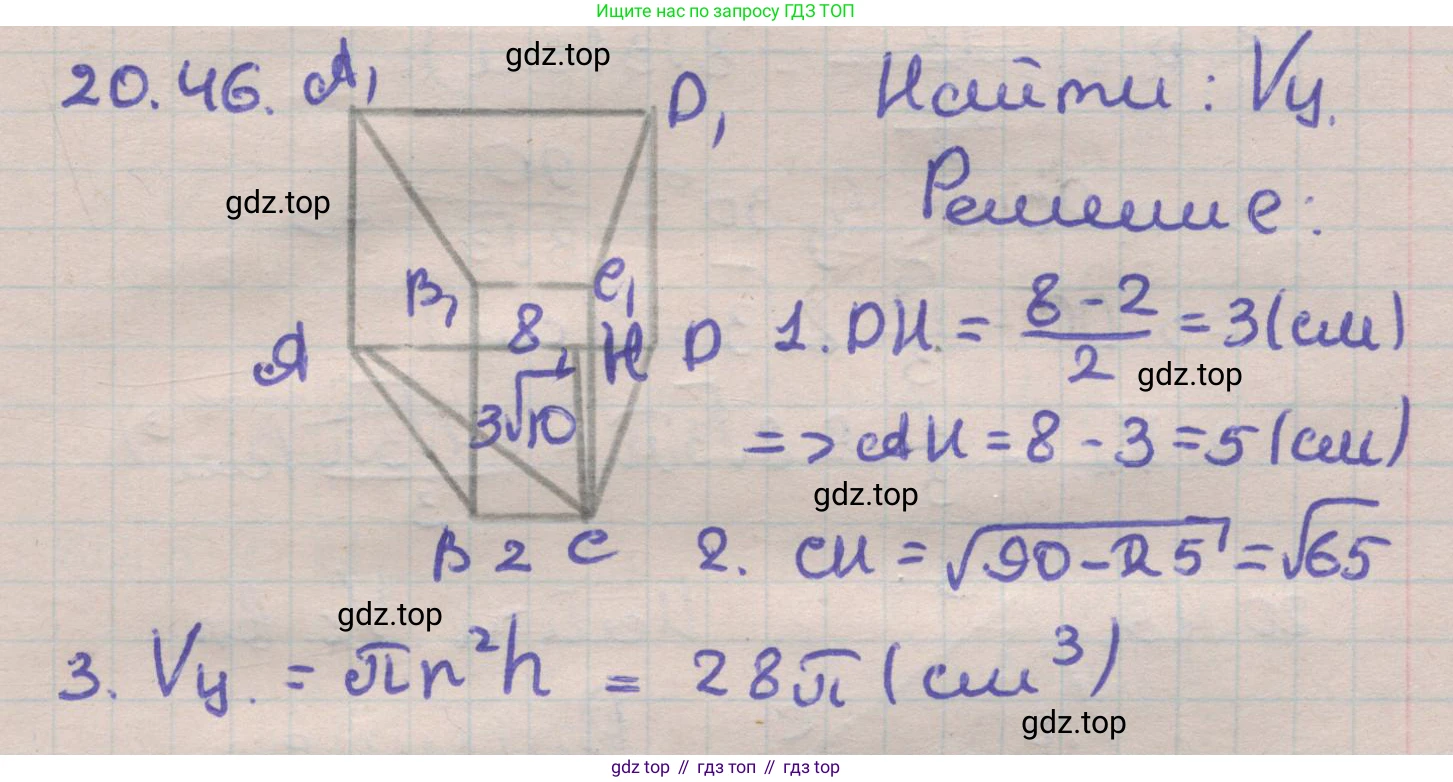 Ищите нас по запросу ГДЗ ТОП
20.46. A₁ D₁ Найти: Vц.
gdz.top
gdz.top
Решение:
B₁ C₁
A 8 H D 1. DH = (8-2)/2 = 3(см)
gdz.top
3√10
=> AH = 8 - 3 = 5 (см)
gdz.top
B 2 C 2. CH = √90-25 = √65
gdz.top
3. Vц. = πr²h = 28π (см³)
gdz.top
gdz top // гдз топ // гдз top